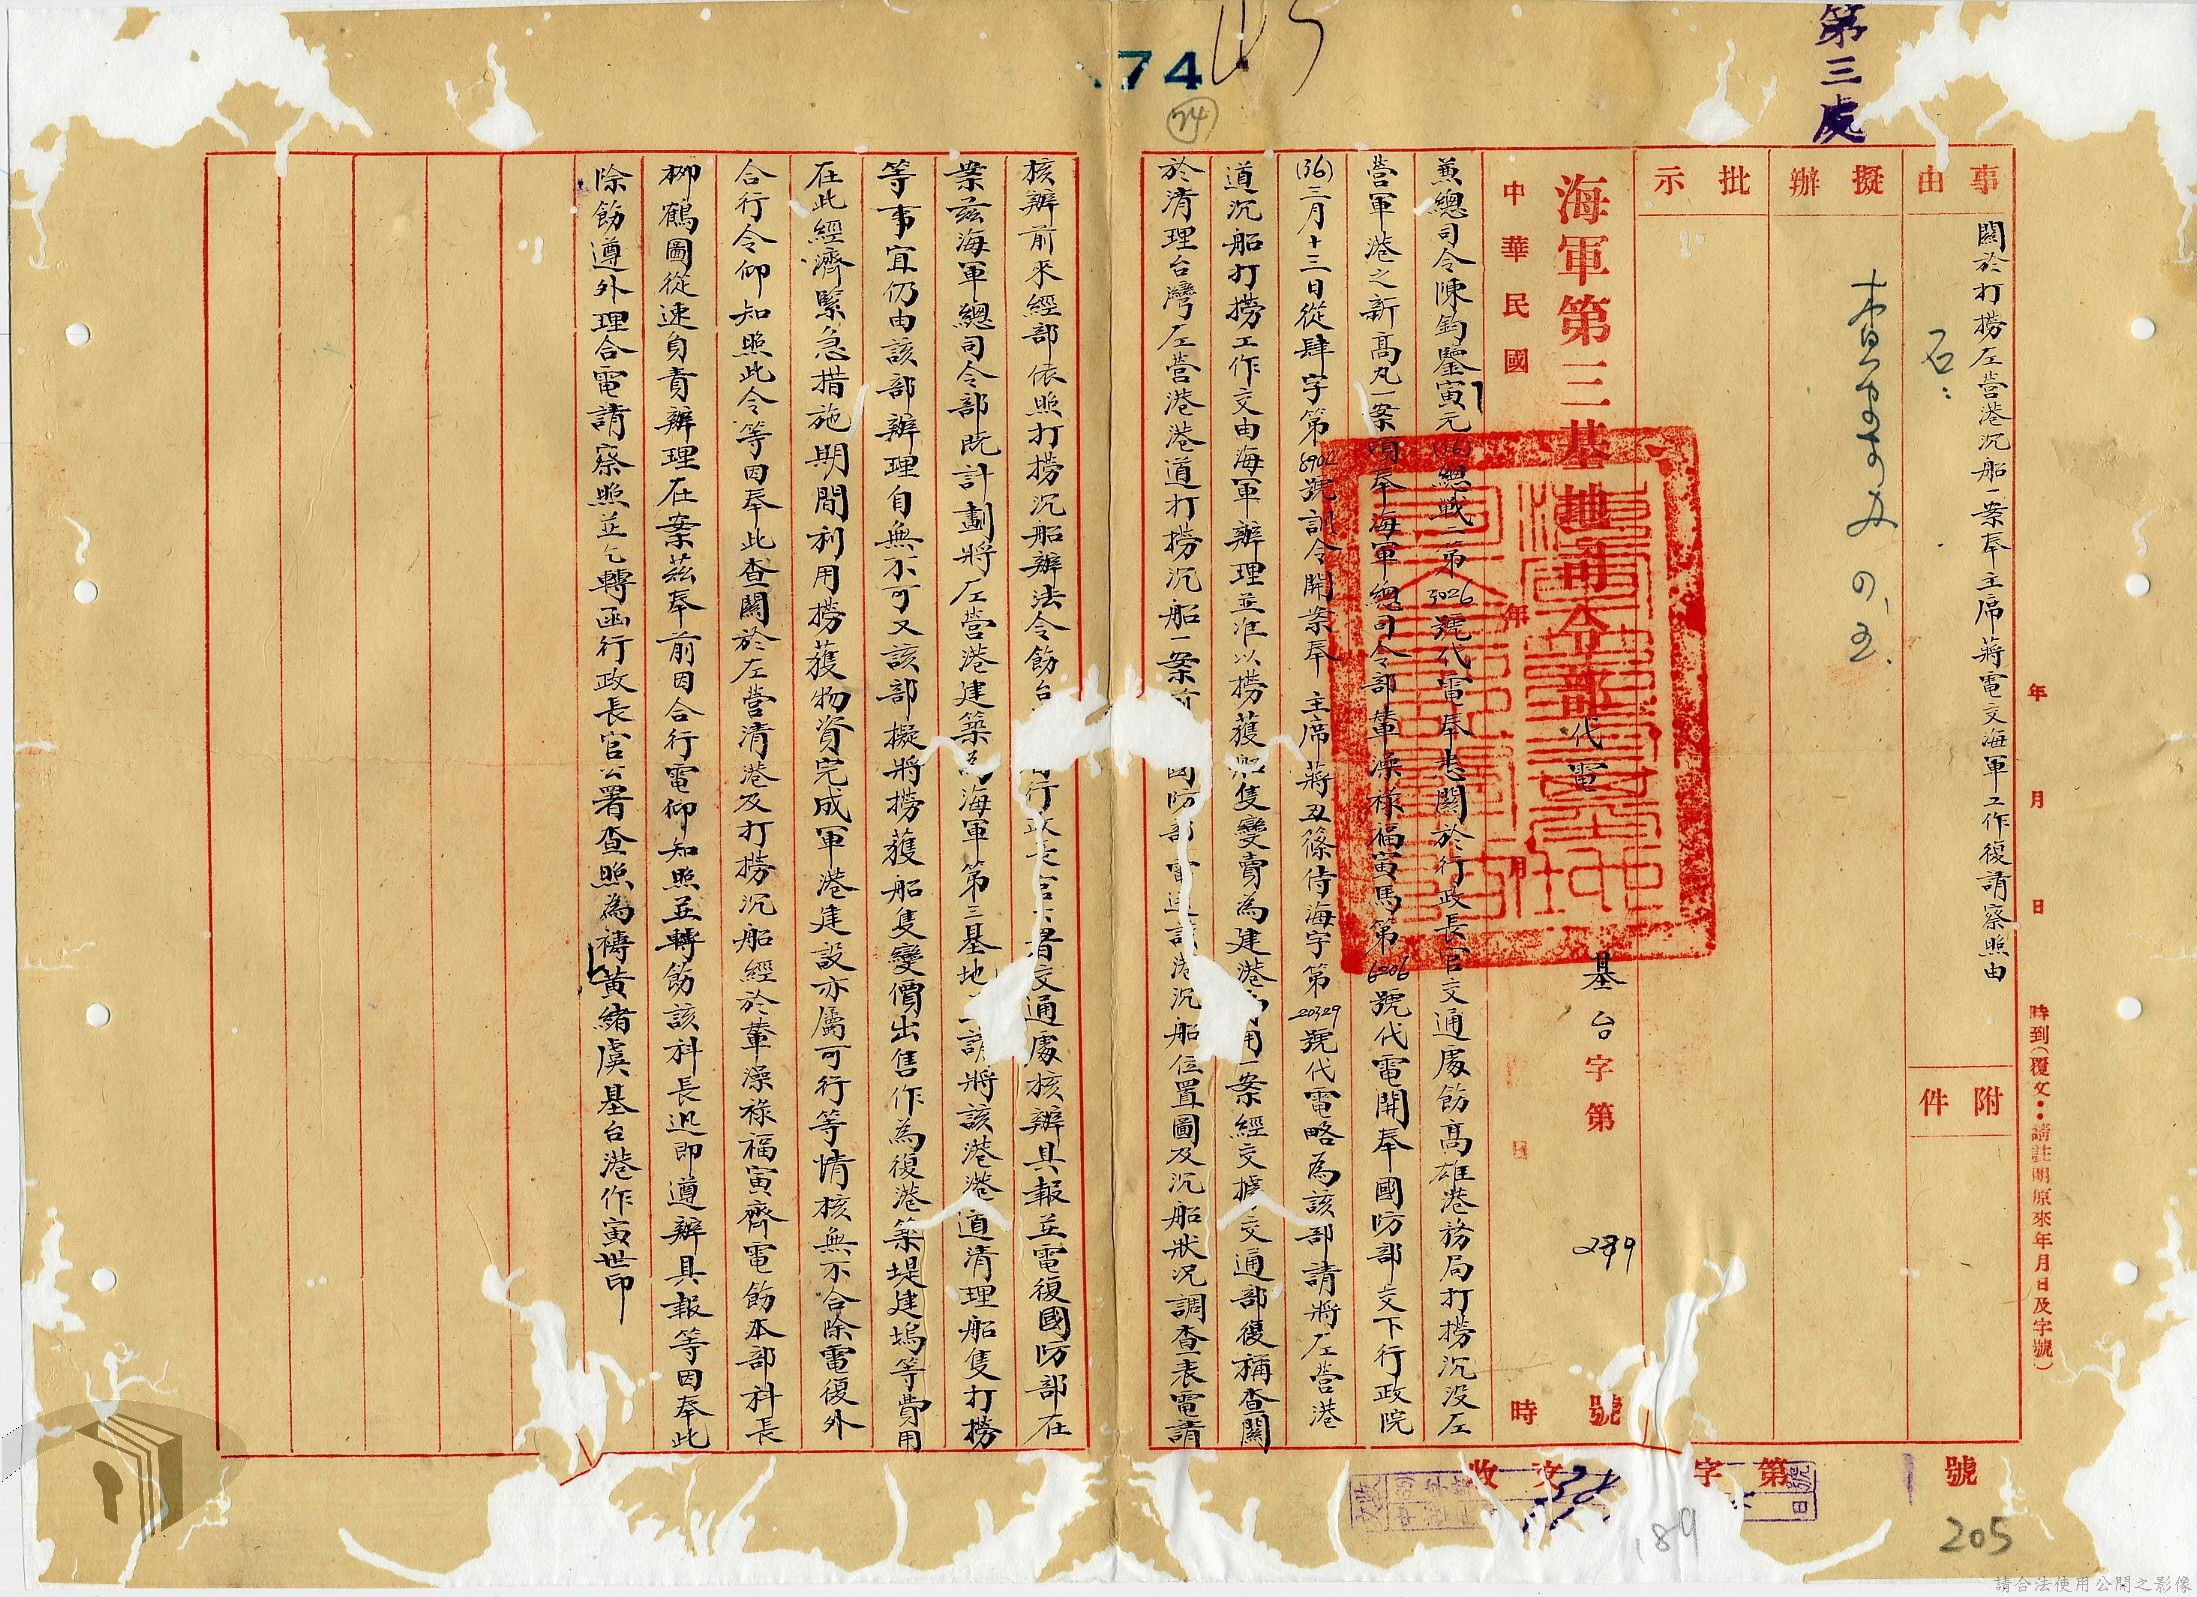 第三處
74
74
事由
關於打撈左營港沉船一案奉主席蔣電交海軍工作復請察照由
附件
擬辦
批示
年 月 日 時到（覆文：請註明原來年月日及字號）
海軍第三基地司令部代電
基台字第 289 號
中華民國 年 月 日 時
兼總司令陳鈞鑒寅元(36)總戰二第3026號代電奉悉關於行政長官交通處飭高雄港務局打撈沉沒左
營軍港之新高丸一案頃奉海軍總司令部葦澡祿福寅馬第6206號代電開奉國防部交下行政院
(36)三月十三日從肆字第8902號訓令開案奉 主席蔣丑篠侍海字第20329號代電略為該部請將左營港
道沉船打撈工作交由海軍辦理並准以撈獲船隻變賣為建港費用一案經交據交通部復稱查關
於清理台灣左營港港道打撈沉船一案前 國防部電送該港沉船位置圖及沉船狀況調查表電請
核辦前來經部依照打撈沉船辦法令飭台 行政長官公署交通處核辦具報並電復國防部在
案茲海軍總司令部既計劃將左營港建築為海軍第三基地 請將該港港道清理船隻打撈
等事宜仍由該部辦理自無不可又該部擬將撈獲船隻變價出售作為復港築堤建塢等費用
在此經濟緊急措施期間利用撈獲物資完成軍港建設亦屬可行等情核無不合除電復外
合行令仰知照此令等因奉此查關於左營清港及打撈沉船經於葦澡祿福寅齊電飭本部科長
柳鶴圖從速負責辦理在案茲奉前因合行電仰知照並轉飭該科長迅即遵辦具報等因奉此
除飭遵外理合電請察照並乞轉函行政長官公署查照為禱黃緒虞基台港作寅世印
收文 字第 號
189
205
請合法使用公開之影像